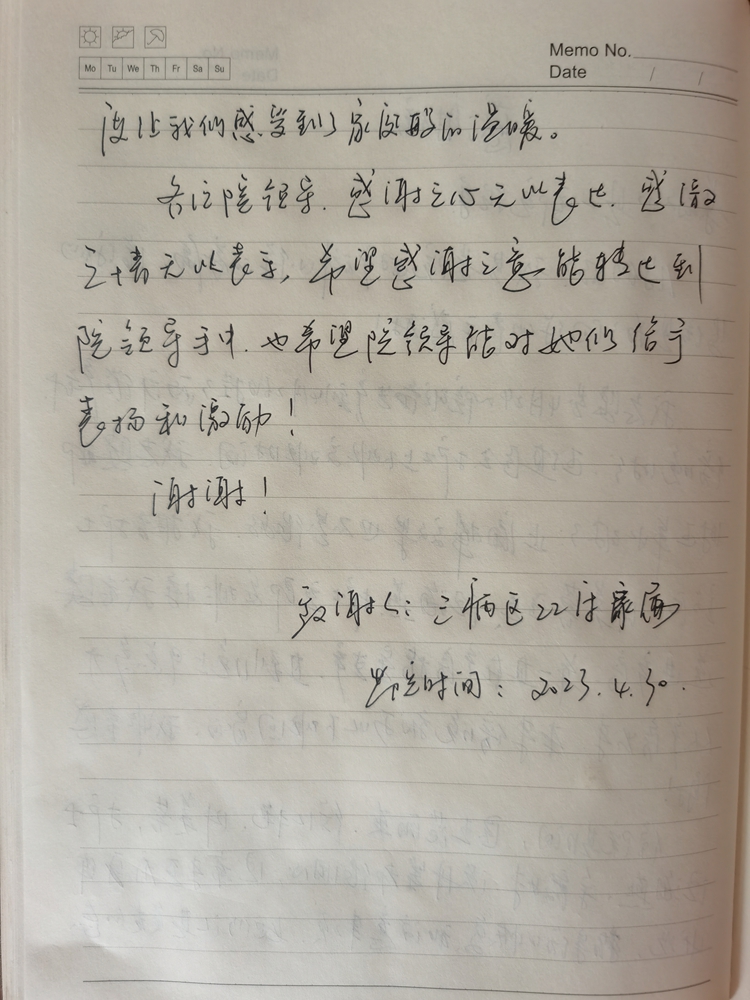 Memo No.
Mo Tu We Th Fr Sa Su
Date / /
度让我们感受到了家庭般的温暖。
各位院领导，感谢之心无以表达，感激
之情无以表示，希望感谢之意能转达到
院领导手中，也希望院领导能对她们给予
表扬和激励！
谢谢！
致谢人：三病区22床家属
出院时间：2023.4.30.